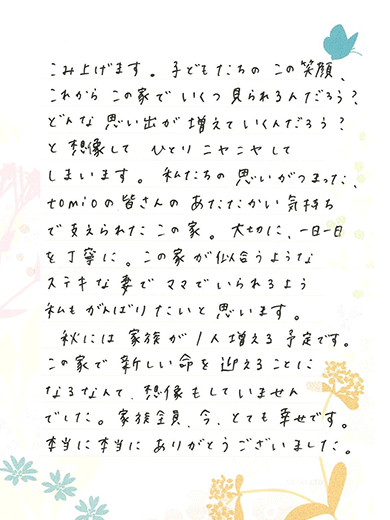 こみ上げます。子どもたちの この笑顔、
これから この家で いくつ見られるんだろう？
どんな 思い出が 増えていくんだろう？
と 想像して ひとり ニヤニヤして
しまいます。 私たちの 思いがつまった、
tomioの皆さんの あたたかい 気持ち
で支えられた この家。 大切に、一日一日
を 丁寧に。この家が似合うような
ステキな妻で ママでいられるよう
私も がんばりたいと 思います。
秋には 家族が 1人増える 予定です。
この家で 新しい命を 迎えることに
なるなんて、想像もしていません
でした。家族全員、今、とても 幸せです。
本当に本当に ありがとうございました。